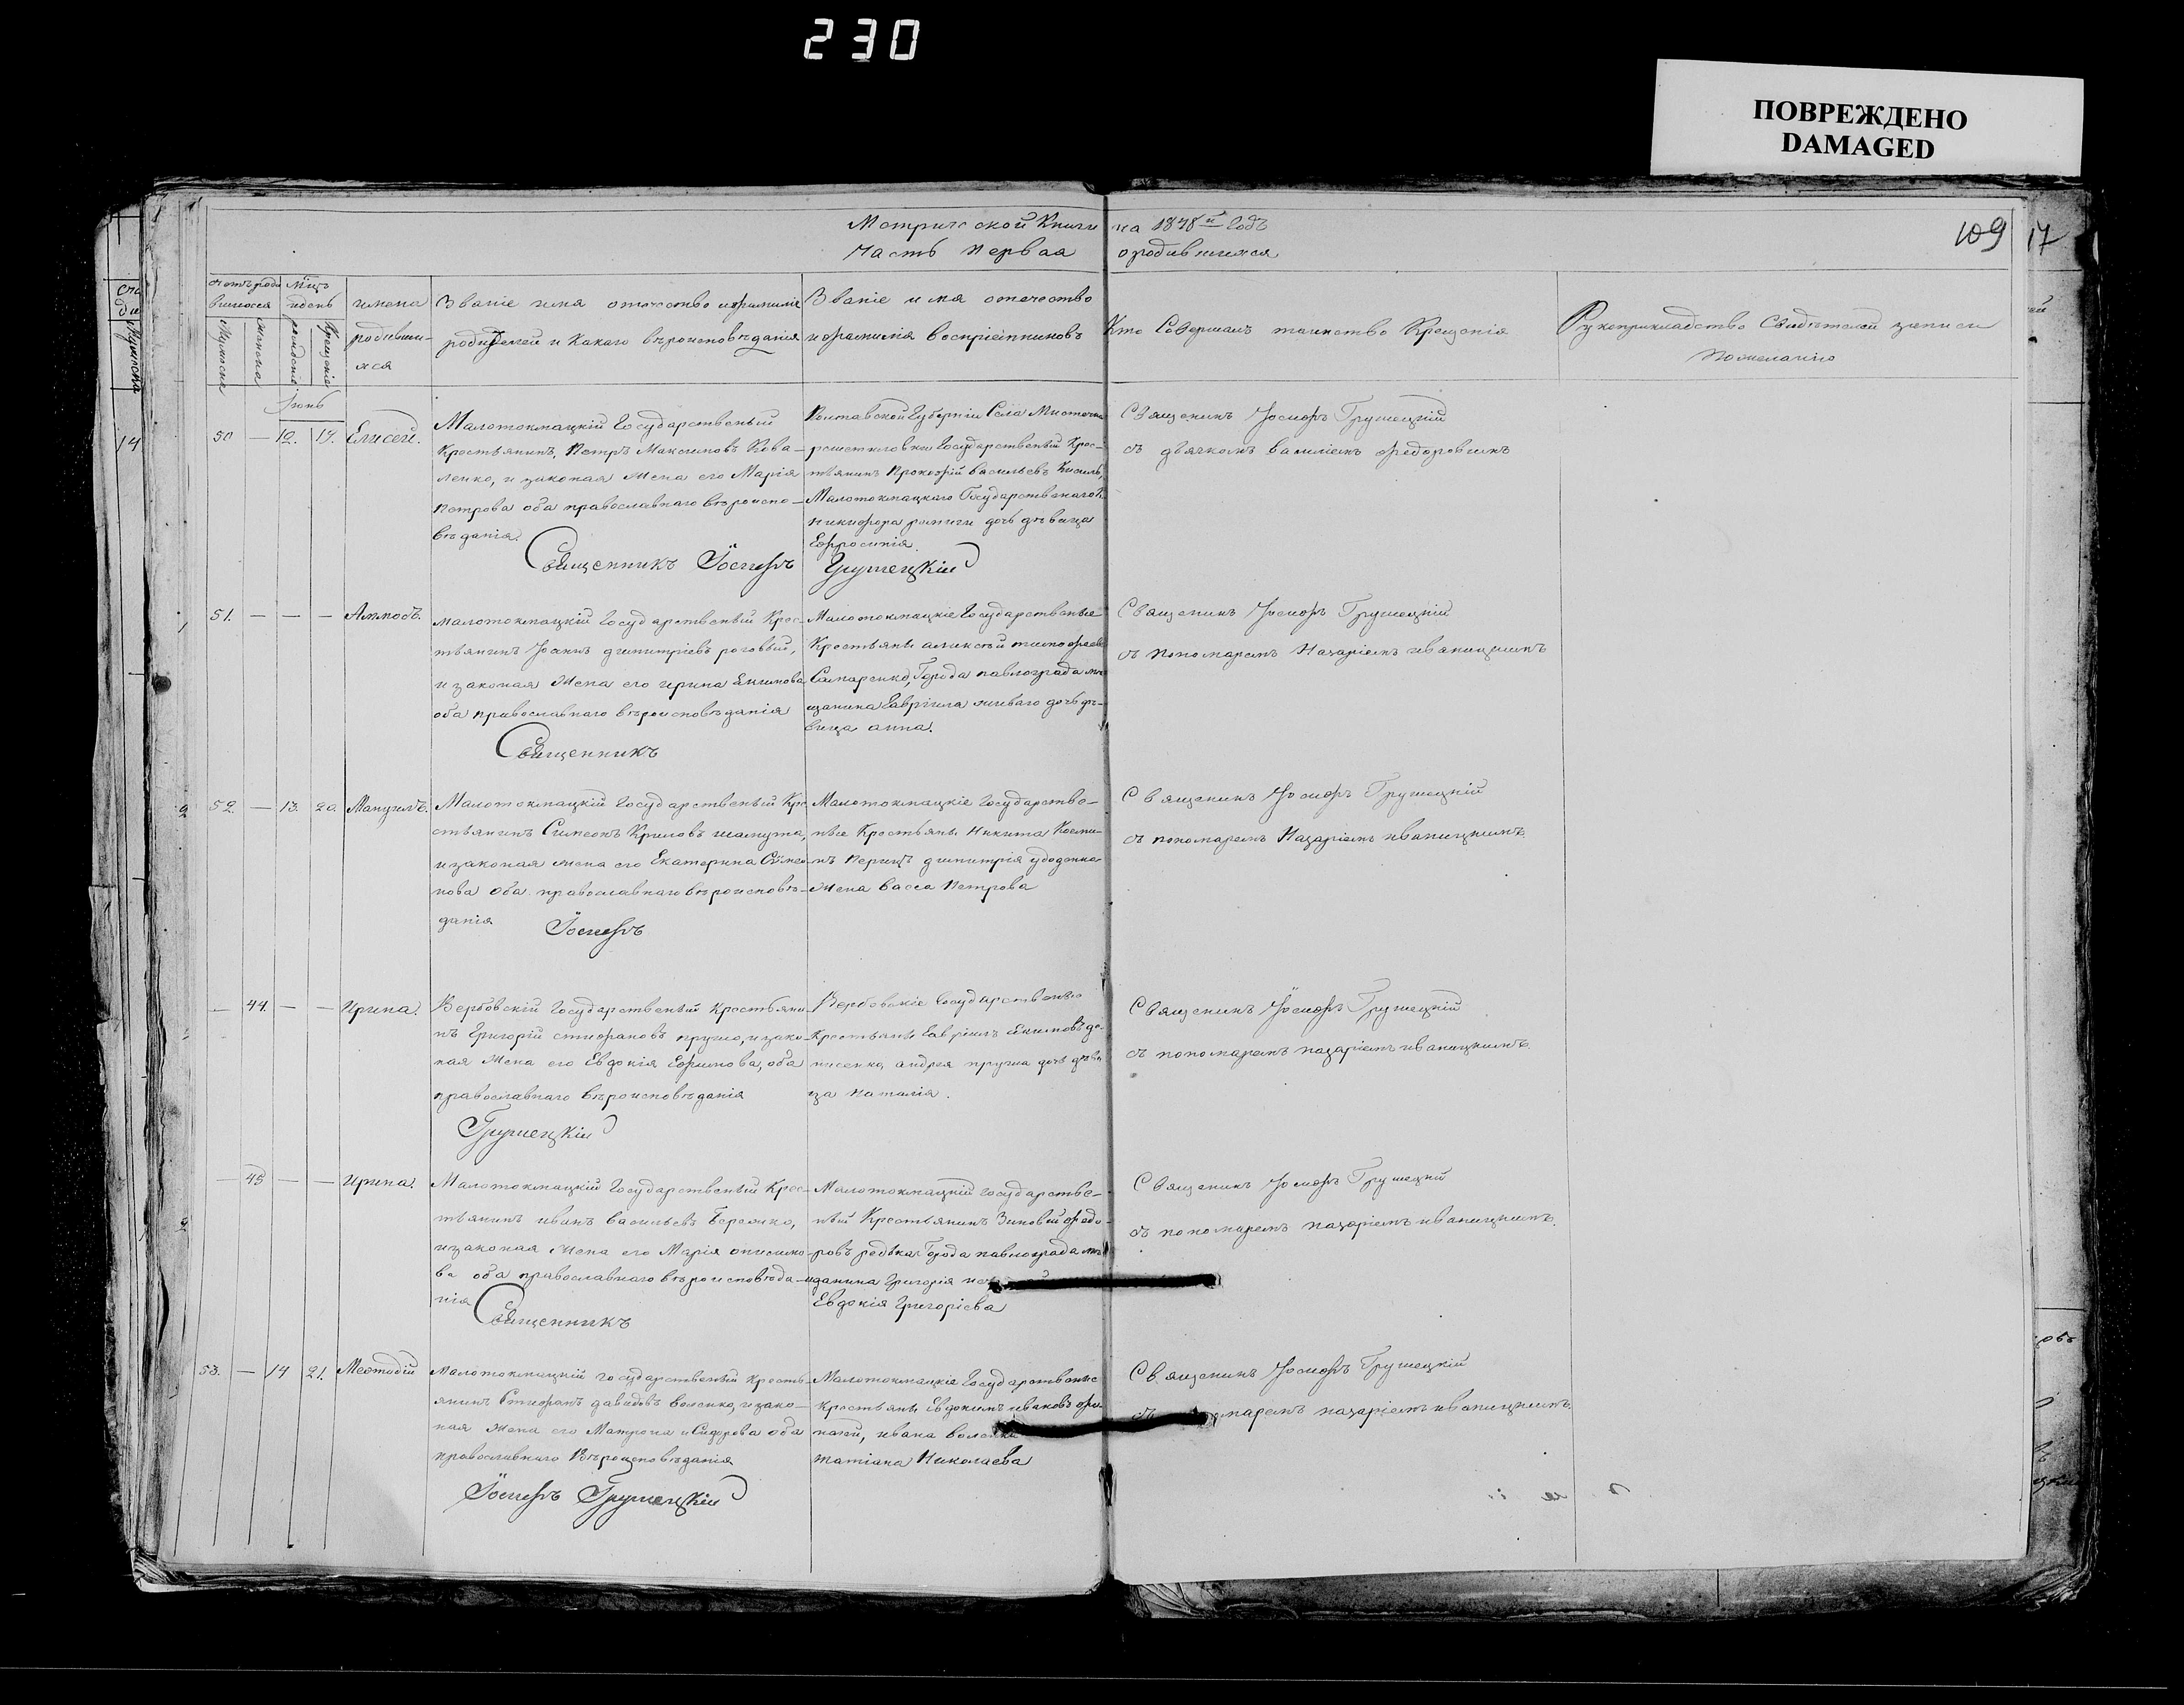 230
ПОВРЕЖДЕНО
DAMAGED
Метрической Книги на 1848й Годъ
109
17
Часть первая о родившихся
Мѣцъ
и день
имена
родивши-
хся
Званіе имя отечество и фамиліе
родителей и Какаго вѣроисповѣданія
Званіе имя отечество
и фамилія воспріемниковъ
Кто Совершалъ таинство Крещенія
Рукоприкладство Свидѣтелей записи
По желанію
14
50 — 12. 19. Елисей.
Малотокмацкій Государственый
Крестьянинъ, Петръ Максимовъ Кова-
ленко, и законая Жена его Марія
Петрова оба православнаго вѣроиспо-
вѣданія.
Полтавской Губерніи Села
Государственый Крес-
тьянинъ Прокофій васильевъ Кисиль,
Малотокмацкаго Государственаго
никифора дочь дѣвица
Ефросинія.
Священикъ Іосифъ Грушецкій
съ дьячкомъ василіемъ федоровимъ
Священникъ Іосифъ Грушецкій
51. — — — Аммосъ.
малотокмацкій Государственый Крес-
тьянинъ Іоанъ димитріевъ роговый,
и законая Жена его ирина Екимова
оба православнаго вѣроисповѣданія
Малотокмацкіе Государственые
Крестьяне аликсѣй тимофеевъ
Города павлограда мѣ
щанина Гавріила дочь дѣ-
вица анна.
Священикъ Іосифъ Грушецкій
съ Пономаремъ Назаріемъ иваницкимъ
Священникъ
52. — 13. 20. Мануилъ.
Малотокмацкій Государственый Кре
стьянинъ Симеонъ Криловъ шамута,
и законая жена его Екатерина Симео-
нова оба православнаго вѣроисповѣ-
данія
Малотокмацкіе Государстве-
ные Крестьяне Никита Косми-
нъ димитрія удоденка
жена васса Петрова
Священикъ Іосифъ Грушецкій
съ пономаремъ Назаріемъ иваницкимъ
Іосифъ
— 44. — — Ирина.
Вербовскій Государственый Крестьяни
нъ Григорій стифановъ пругло, и зако-
ная Жена его Евдокія Ефимова, оба
православнаго вѣроисповѣданія
Вербовскіе Государственые
Крестьяне Гавріилъ Екимовъ де-
нисенко, андрея пругла дочь дѣви
ца Наталія.
Священикъ Іосифъ Грушецкій
съ пономаремъ назаріемъ иваницкимъ.
Грушецкій
— 45 — — Ирина.
Малотокмацкій Государственый Крес-
тьянинъ иванъ васильевъ Бережко,
и законая Жена его Марія онисимо-
ва оба православнаго вѣроисповѣда-
нія
Малотокмацкій Государстве-
ный Крестьянинъ Зиновій федо-
ровъ редька Города павлограда мѣ
щанина Григорія
Евдокія Григоріева
Священикъ Іосифъ Грушецкій
съ пономаремъ назаріемъ иваницкимъ.
Священникъ
53. — 14 21. Меѳодій
Малотокмацкій Государственый Кресть-
янинъ Стифанъ давидовъ воленко, и зако-
ная жена его Матрона Сидорова оба
православнаго Вѣроисповѣданія
Малотокмацкіе Государственые
крестьяне Евдокимъ ивановъ
ивана воленка
татіана Николаева
Священикъ Іосифъ Грушецкій
назаріемъ иваницкимъ.
Іосифъ Грушецкій